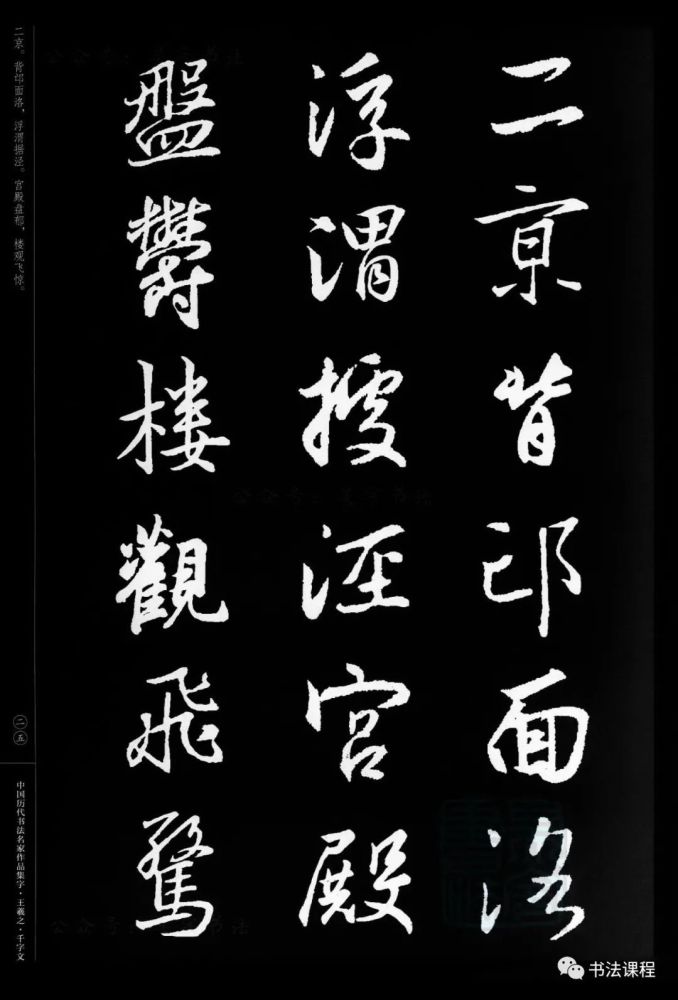 二京背邙面洛
浮渭據泾宫殿
盤鬱楼觀飛驚
二京。背邙面洛，浮渭据泾。宫殿盘郁，楼观飞惊。
二五
中国历代书法名家作品集字·王羲之·千字文
书法课程